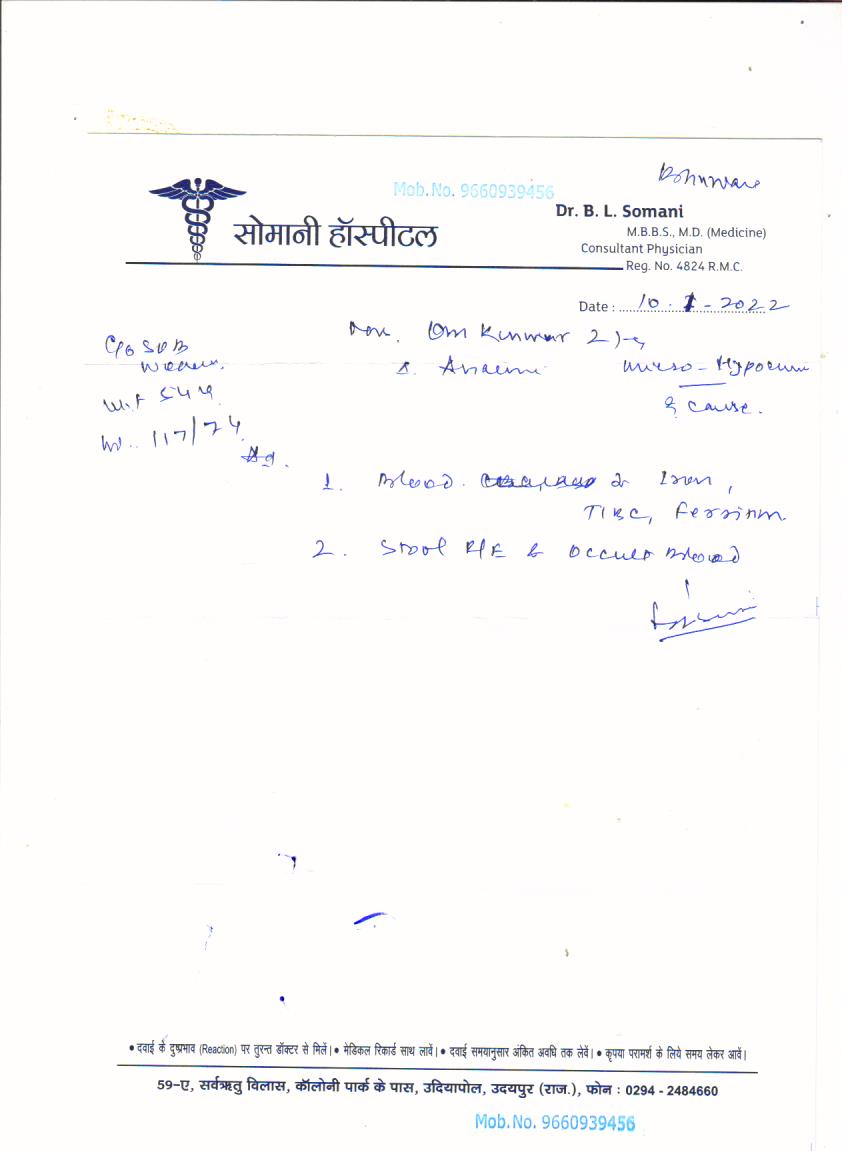 Mob.No. 9660939456
सोमानी हॉस्पीटल
Dr. B. L. Somani
M.B.B.S., M.D. (Medicine)
Consultant Physician
Reg. No. 4824 R.M.C.
Date : 10.1-2022
Om Kunwar
C/o SOB
Wt 54
117/74
& cause.
1. Blood Iron,
TIBC, Ferritin
2. Stool R/E & Occult Blood
• दवाई के दुष्प्रभाव (Reaction) पर तुरन्त डॉक्टर से मिलें। • मेडिकल रिकार्ड साथ लावें। • दवाई समयानुसार अंकित अवधि तक लेवें। • कृपया परामर्श के लिये समय लेकर आवें।
59-ए, सर्वऋतु विलास, कॉलोनी पार्क के पास, उदियापोल, उदयपुर (राज.), फोन : 0294 - 2484660
Mob.No. 9660939456